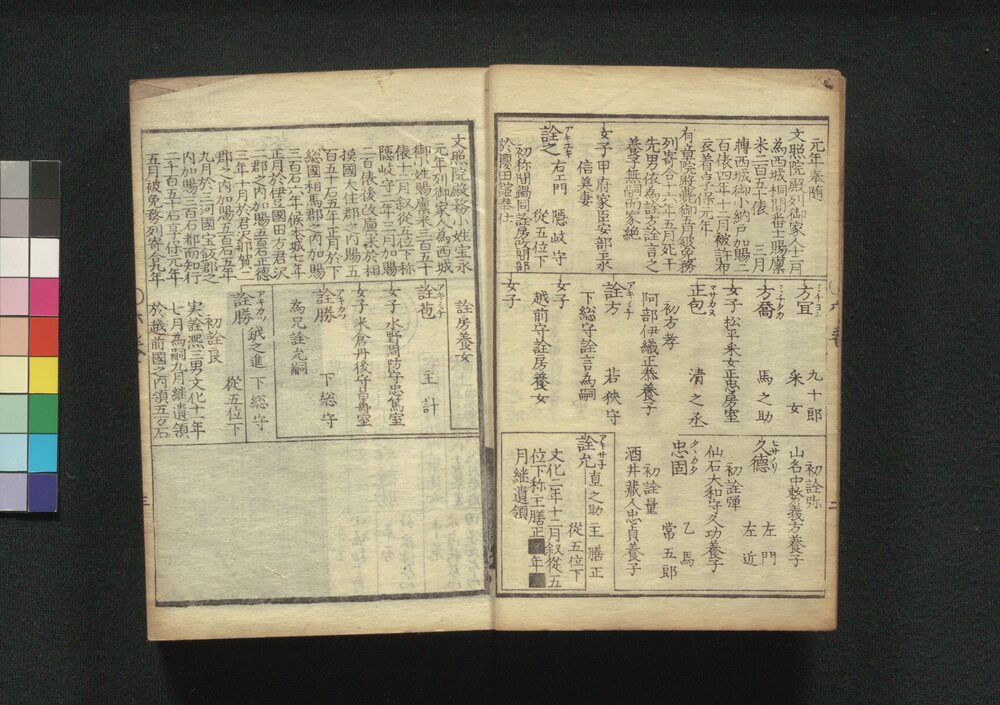 元年奉随
文照院殿列御家人十二月
為西城桐間番士賜廩
米二百五十俵 三月
轉西城御小納戸加賜二
百俵四年十二月被許布
衣着享保元年
有章院殿薨御五月被免務
列寄合十六年五月死干
先男依為詮方詮言之
養子無嗣而家絶
女子甲府家臣安部玉永
信英妻
アキユキ
詮之 右エ門 隠岐守
從五位下
初称間鍋同詮房改間部
於櫻田館奉仕
ミチヨシ
方宜 九十郎
采女
ミチタカ
方喬 馬之助
女子松平采女正忠房室
マサカヌ
正包 清之丞
初方孝
阿部伊織正恭養子
アキミチ
詮方 若狹守
下総守詮言為嗣
女子
越前守詮房養女
女子
初詮弥
山名中務義方養子
左門
ヒサノリ
久德 左近
初詮暉
仙石大和守久功養子
乙馬
タヽカタ
忠固 常五郎
初詮量
酒井藏人忠貞養子
アキサネ
詮允 直之助 主膳正
從五位下
文化二年十二月叙從五
位下称主膳正■年■
月継遺領
二
文照院殿務小姓宝永
元年列御家人為西城
御小姓賜廩米三百五十
俵十二月叙從五位下称
隠岐守二年三月加賜
二百俵後改廩米於相
摸國大住郡之内賜五
百五十石五年正月於下
総國相馬郡之内加賜
三百石六年候本城七年
正月於伊豆國田方君沢
二郡之内加賜五百石正德
三年十月於君沢那賀二
郡之内加賜五百石五年
九月於三河國宝飯郡之
内加賜三百石都而知行
二千百五十石享保元年
五月被免務列寄合九年
詮房養女
アキミチ
詮苞 主計
女子水野周防守忠篤室
女子米倉丹後守昌壽室
アキカツ
詮勝 下総守
為兄詮允嗣
アキカツ
詮勝 鉞之進 下総守
從五位下
初詮良
実詮凞三男文化十一年
七月為嗣九月継遺領
於越前國之内領五万石
三